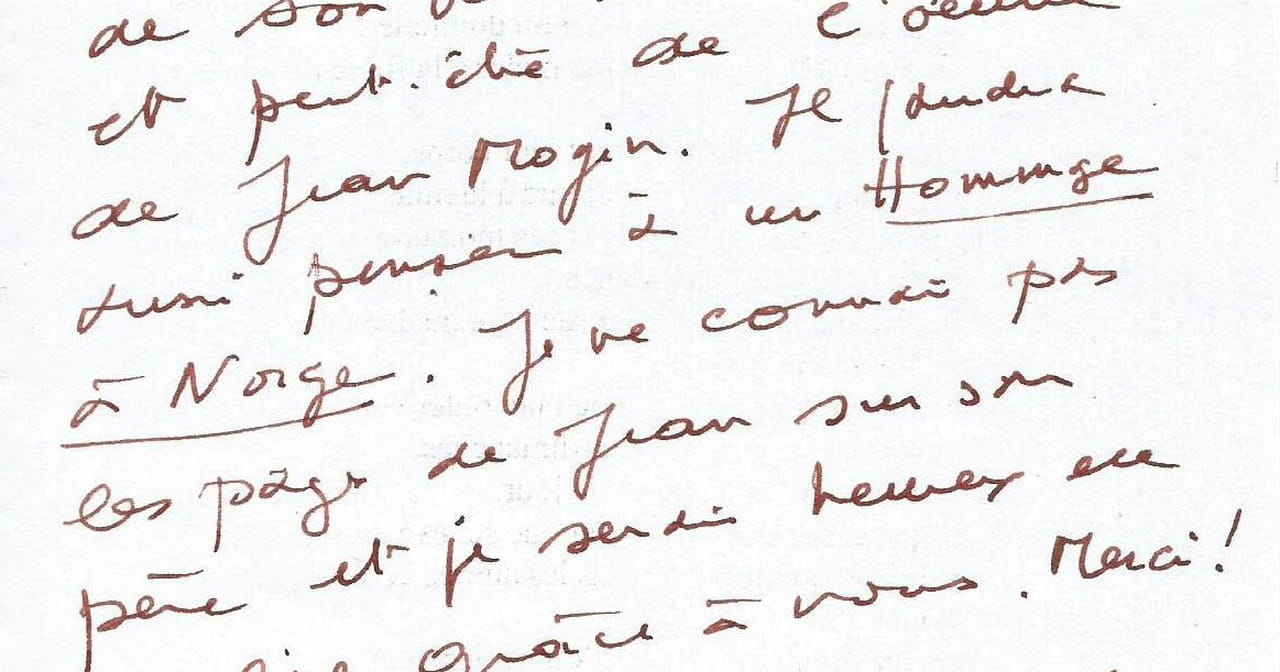 de son
et peut-être de l'oeuvre
de Jean Mogin. Il faudra
aussi penser à un Hommage
à Norge. Je ne connais pas
les pages de Jean sur son
père et je serais heureux de
grâce à vous. Merci!